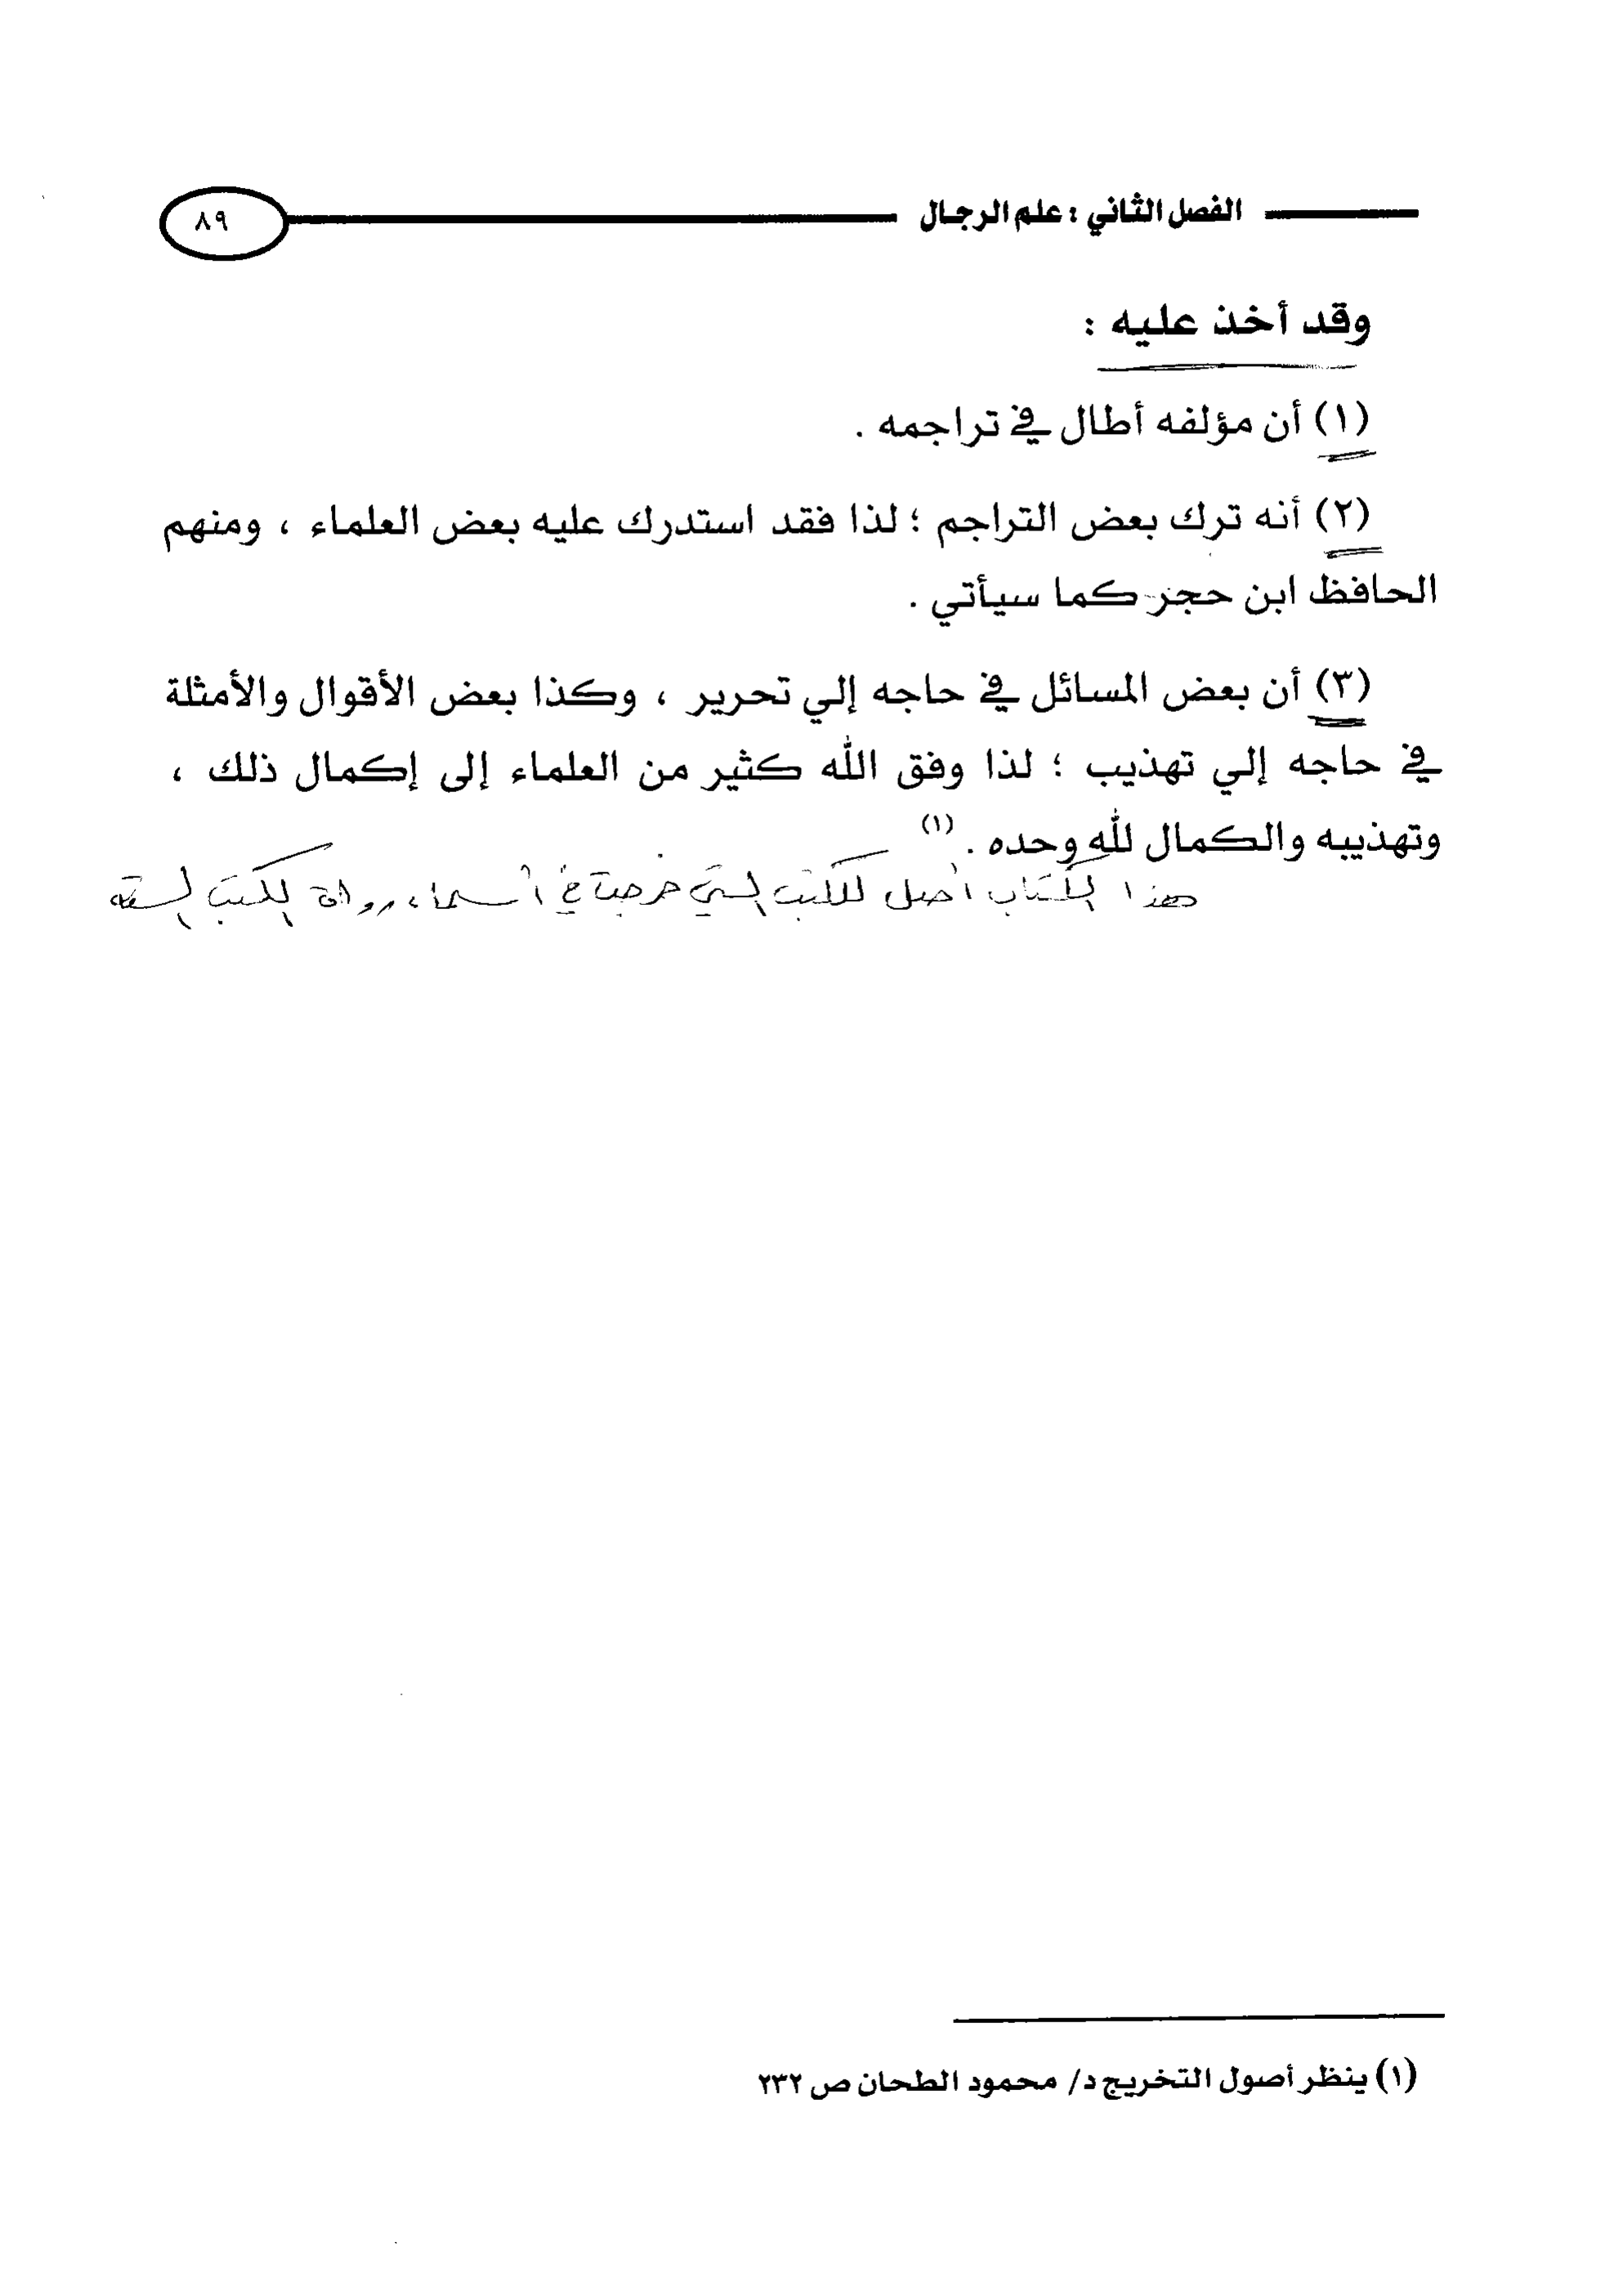 الفصل الثاني : علم الرجال ٨٩
وقد أخذ عليه :
(١) أن مؤلفه أطال في تراجمه .
(٢) أنه ترك بعض التراجم ؛ لذا فقد استدرك عليه بعض العلماء ، ومنهم
الحافظ ابن حجر كما سيأتي .
(٣) أن بعض المسائل في حاجه إلي تحرير ، وكذا بعض الأقوال والأمثلة
في حاجه إلي تهذيب ؛ لذا وفق الله كثير من العلماء إلى إكمال ذلك ،
وتهذيبه والكمال لله وحده . (١)
هذا الكتاب أصل للكتب التي خرجت في أسماء رواة الكتب الستة
(١) ينظر أصول التخريج د/ محمود الطحان ص ٢٣٢